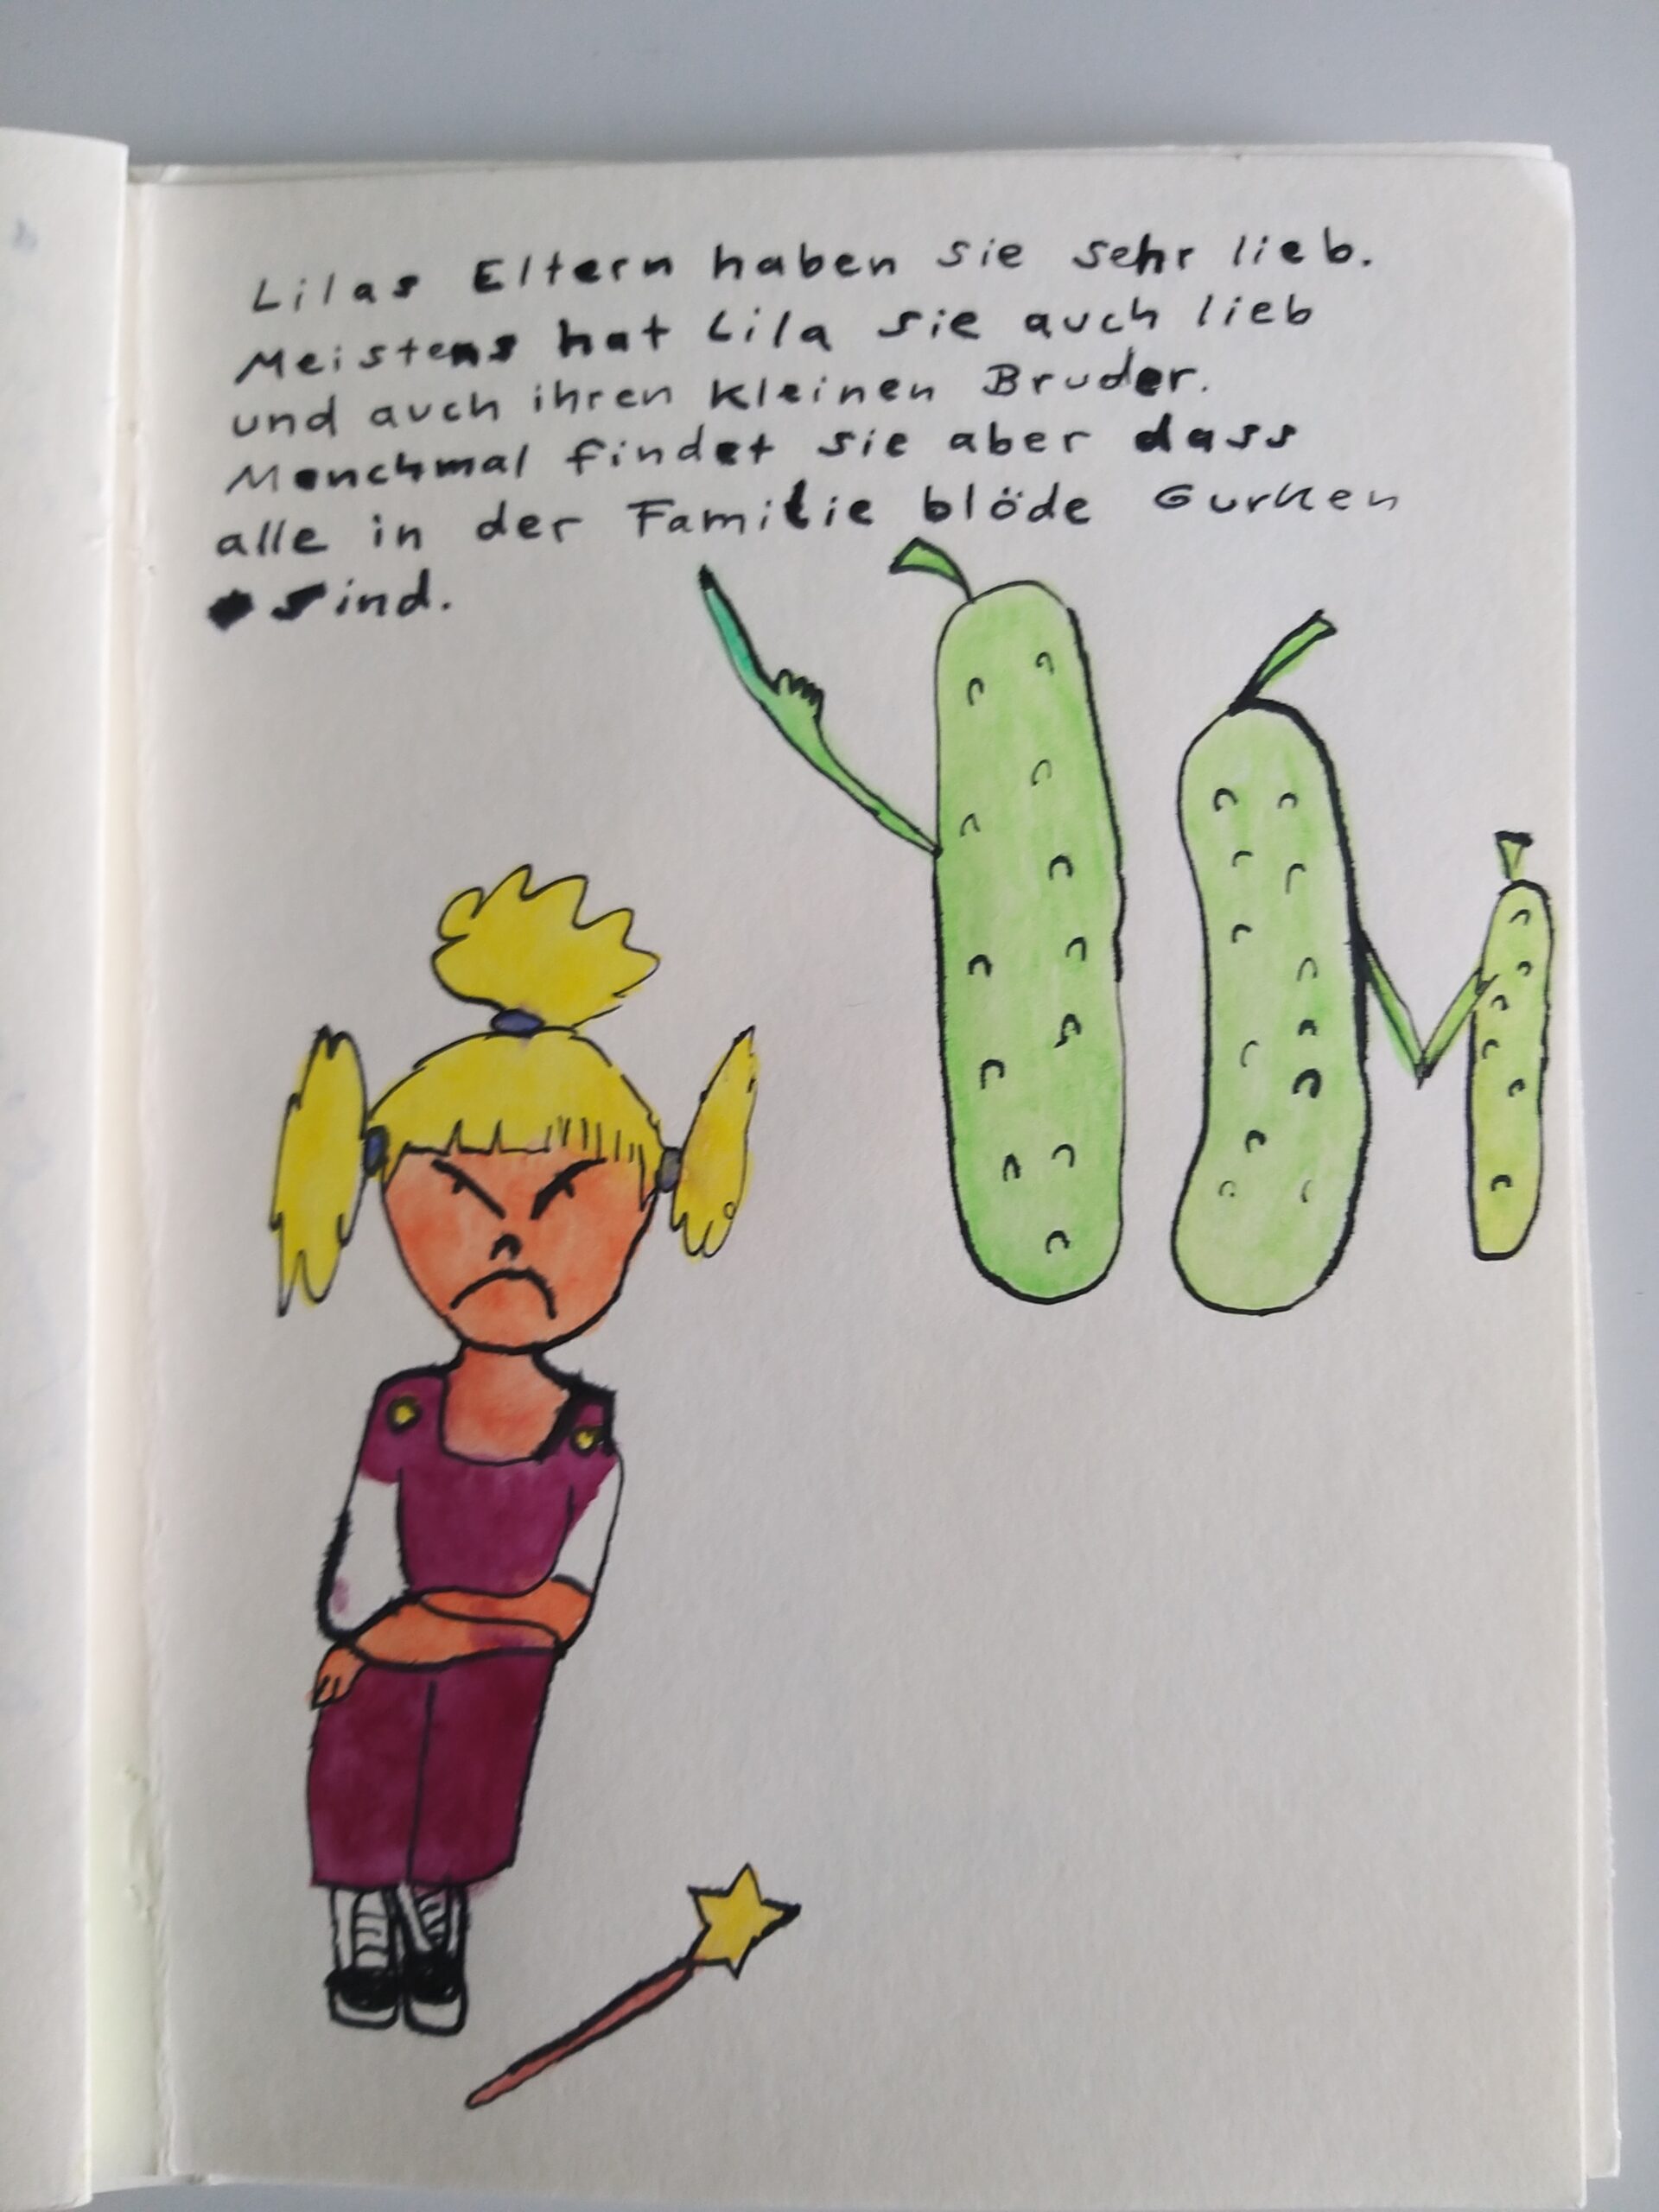 Lilas Eltern haben sie sehr lieb.
Meistens hat Lila sie auch lieb
und auch ihren kleinen Bruder.
Manchmal findet sie aber dass
alle in der Familie blöde Gurken
sind.